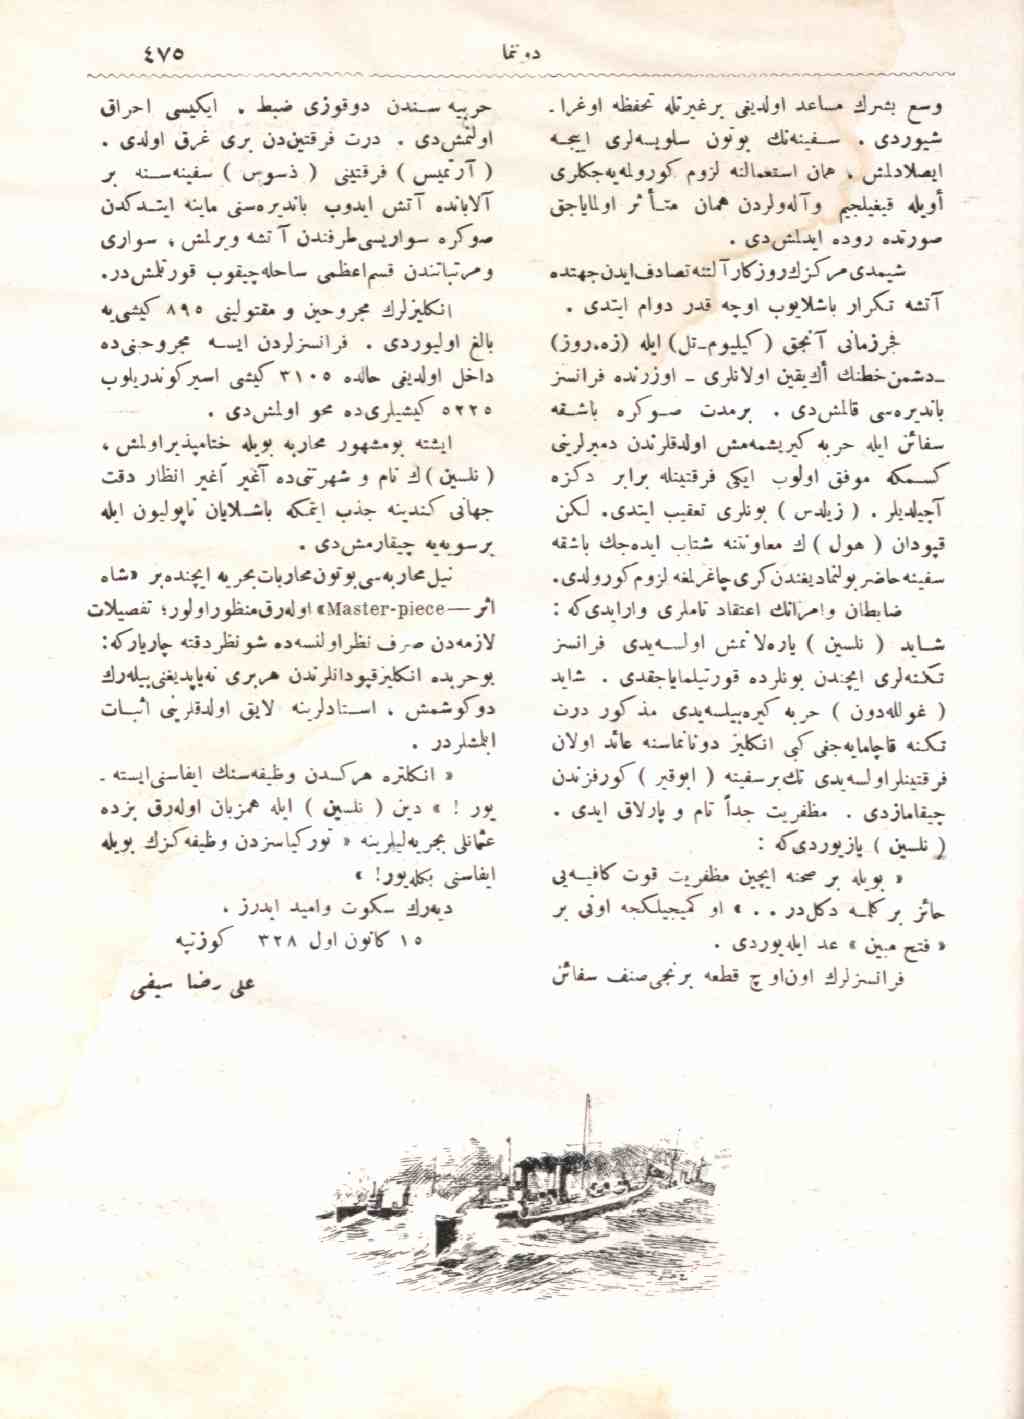 دوننما
٤٧٥
وسع بشرك مساعد اولدیغی برغیرتله تحفظه اوغرا ـ
شیوردی . سفینه‌نك بوتون سلویسه‌لری اییجه
ایصلادلمش ، همان استعمالنه لزوم كورولمه‌یه‌جكلری
أویله قیغیلجیم وآله‌ولردن همان متأثر اولمایاجق
صورتده روده ایدلمش‌دی .
شیمدی مركزك روزكار آلتنه تصادف ایدن جهتده
آتشه تكرار باشلایوب اوچه قدر دوام ایتدی .
فجرزمانی آنجق ( كیلیوم ـ تل ) ایله (ژه‌ره‌روز)
ـ دشمن خطنك أك یقین اولانلری ـ اوزرنده فرانسز
باندیره‌سی قالمش‌دی . برمدت صوكره باشقه
سفائن ایله حربه كیریشمه‌مش اولدقلرندن دمیرلرینی
كسمكه موفق اولوب ایكی فرقتینله برابر دكزه
آچیلدیلر . ( زیلدس ) بونلری تعقیب ایتدی. لكن
قپودان ( هول ) ك معاونتنه شتاب ایده‌جك باشقه
سفینه حاضر بولنمادیغندن كری چاغرلمغه لزوم كورولدی.
ضابطان وامرانك اعتقاد تاملری وارایدی كه :
شاید ( نلسین ) یاره‌لانمش اولسه‌یدی فرانسز
تكنه‌لری ایچندن بونلرده قورتیلمایاجقدی . شاید
( غوللەدون ) حربه كیره‌بیلسه‌یدی مذكور درت
تكنه قاچامایه‌جغی كبی انكلیز دونانماسنه عائد اولان
فرقتینلر اولسه‌یدی تك برسفینه ( ابوقیر ) كورفزندن
چیقامازدی . مظفریت جداً تام و پارلاق ایدی .
( نلسین ) یازیوردی كه :
« بویله بر صحنه ایچین مظفریت قوت كافیه‌یی
حائز بر كلمه دكل‌در . . » او كمیجیلكجه اونی بر
« فتح مبین » عد ایله‌یوردی .
فرانسزلرك اون اوچ قطعه برنجی صنف سفائن
حربیه سندن دوقوزی ضبط . ایكیسی احراق
اولنمش‌دی . درت فرقتین‌دن بری غرق اولدی .
( آرتمیس ) فرقتینی ( ذسوس ) سفینه‌سنه بر
آلابانده آتش ایدوب باندیره‌سنی ماینه ایتدكدن
صوكره سواریسی طرفندن آتشه ویرلمش ، سواری
ومرتباتندن قسم اعظمی ساحله چیقوب قورتلمش‌در.
انكلیزلرك مجروحین و مقتولینی ٨٩٥ كیشی‌یه
بالغ اولیوردی . فرانسزلردن ایسه مجروحین‌ده
داخل اولدیغی حالده ٣١٠٥ كیشی اسیر كوندریلوب
٥٢٢٥ كیشیلری‌ده محو اولمش‌دی .
ایشته بومشهور محاربه بویله ختامپذیر اولمش ،
( نلسین ) ك نام و شهرتنی‌ده آغیر آغیر انظار دقت
جهانی كندینه جذب ایتمكه باشلایان ناپولیون ایله
برسویه‌یه چیقارمش‌دی .
نیل محاربه‌سی بوتون محاربات بحریه ایچنده بر «شاه
اثر — Master-piece» اوله‌رق منظور اولور؛ تفصیلات
لازمه‌دن صرف نظر اولنسه‌ده شو نظردقته چاریار كه:
بوحربده انكلیز قپودانلرندن هربری نه‌یاپدیغنی بیله‌رك
دوكوشمش ، استادلرینه لایق اولدقلرینی اثبات
ایلمشلردر .
« انكلتره هركسدن وظیفه‌سنك ایفاسنی ایسته ـ
یور ! » دین ( نلسین ) ایله همزبان اوله‌رق بزده
عثمانلی بحریه‌لیلرینه « توركیا سزدن وظیفه‌كزك بویله
ایفاسنی بكله‌یور! »
دیه‌رك سكوت وامید ایدرز .
١٥ كانون اول ٣٢٨ كوزتپه
علی رضا سیفی